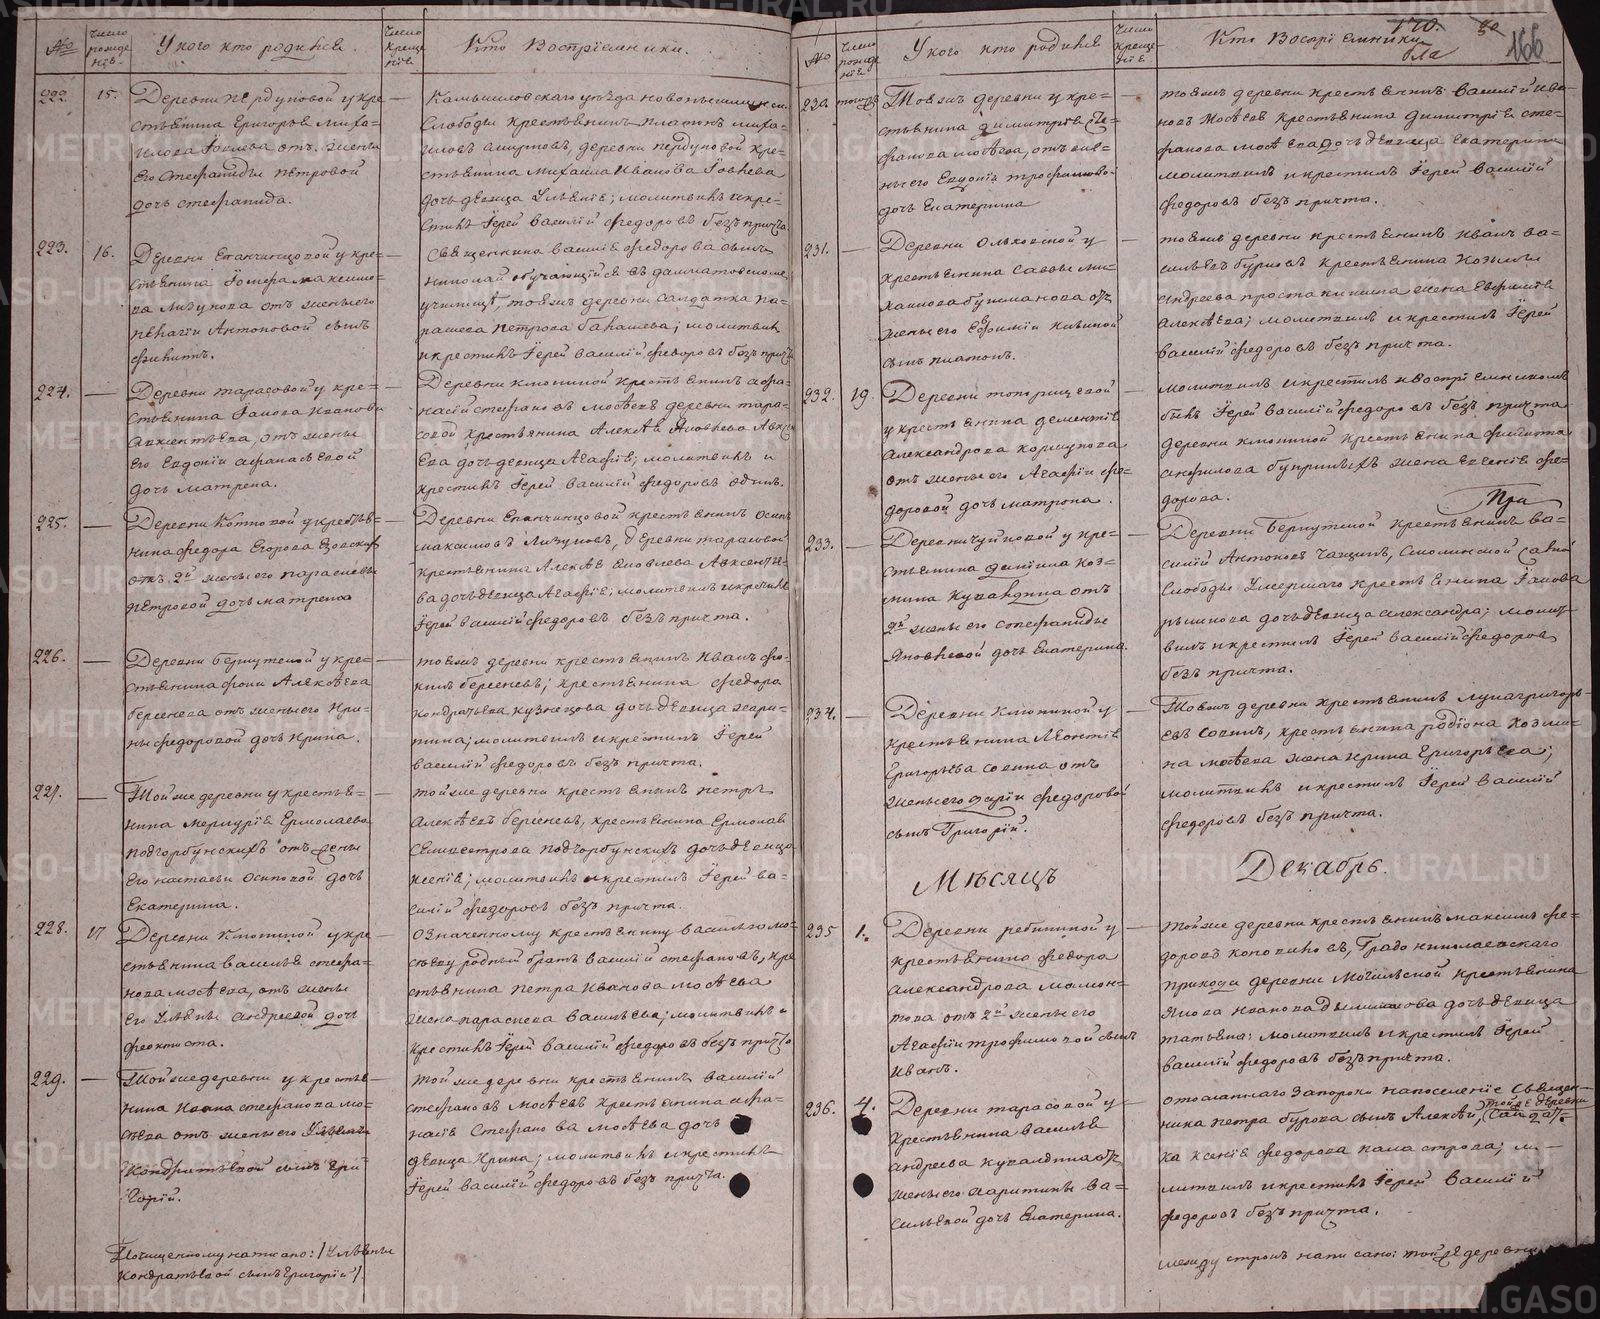 №
Число рожде нiя.
У кого кто родился.
Число креще нiя
Кто Воспрiемники.
222.
15.
Деревни Пердуновой у кре=
стьянина Григорья Миха=
илова Iовлева отъ жены
его Стефаниды Петровой
дочь Стефанида.
Камышловскаго уѣзда
Слободы крестьянинъ Платонъ Миха=
иловъ деревни Пердуновой кре=
стьянина Михаила Иванова Iовлева
дочь дѣвица Улья́нiя; молитвилъ и кре=
стилъ Iерей Василiй Федоровъ безъ причта.
223.
16.
Деревни Епанчинцовой у кре=
стьянина
ва Лизунова отъ жены его
Пелагiи Антоновой сынъ
Филипъ.
Священника Василiя Федорова сынъ
Николай обучающiйся въ Далматовскомъ
училищѣ, тоя жъ деревни салдатка Па=
раскева Петрова
и крестилъ Iерей Василiй Федоровъ безъ причта
224.
Деревни Тарасовой у кре=
стьянина Iакова Иванова
Авксентьева, отъ жены
его Евдокiи Афанасьевой
дочь Матрена.
Деревни Клюпиной крестьянинъ Афа=
насiй Стефановъ Мосѣевъ деревни Тара=
совой крестьянина Алексѣя Яковлева Авксен
ева дочь дѣвица Агафiя; молитвилъ и
крестилъ Iерей Василiй Федоровъ одинъ.
225.
Деревни Котковой у крестья=
нина Федора Егорова
отъ 2й жены его Параскевы
Петровой дочь Матрена
Деревни Епанчинцовой крестьянинъ Осипъ
Максимовъ Лизуновъ, деревни Тарасовой
крестьянина Алексѣя Яковлева Авксентье=
ва дочь дѣвица Агафiя; молитвилъ и крестилъ
Iерей Василiй Федоровъ безъ причта.
226.
Деревни у кре=
стьянина Фоки Алексѣева
Берсенева отъ жены его Ири=
ны Федоровой дочь Ирина.
тоя жъ деревни крестьянинъ Иванъ Фо=
кинъ Берсеневъ; крестьянина Федора
Кондратьева Кузнецова дочь дѣвица Хари=
тина; молитвилъ и крестилъ Iерей
Василiй Федоровъ безъ причта.
227.
Той же деревни у крестья=
нина Меркурiя Ермолаева
Подгорбунскихъ отъ жены
его Настасьи Осиповой дочь
Екатерина.
той же деревни крестьянинъ Петръ
Алексѣевъ Берсеневъ, крестьянина Ермолая
Селиверстрова Подгорбунскихъ дочь дѣвица
Ксенiя; молитвилъ и крестилъ Iерей Ва=
силiй Федоровъ безъ причта.
228.
17
Деревни Клюпиной у кре
стьянина Василья Стефа=
нова Мосѣева, отъ жены
его Ульяны Андреевой дочь
Феоктиста.
означенному крестьянину Василью Мо=
сѣеву родный братъ Василiй Стефановъ, кре
стьянина Петра Иванова Мосѣева
жена Параскева Васильева; молитвилъ и
крестилъ Iерей Василiй Федоровъ безъ причта
229.
Той же деревни у крестья
нина Ивана Стефанова Мо=
сѣева отъ жены его Ульяны
Кондратьевой сынъ Гри=
горiй.
той же деревни крестьянинъ Василiй
Стефановъ Мосѣевъ крестьянина Афа=
насiя Стефанова Мосѣева дочь
дѣвица Ирина; молитвилъ и крестилъ
Iерей Василiй Федоровъ безъ причта.
По чищенному написано: /Ульяны
Кондратьевой сынъ Григорiй/.
№
Число рожде нiя
У кого кто родился
Число креще= нiя
Кто Воспрiемники
170.
80
166
230
Тоя жъ деревни у кре=
стьянина Димитрiя Сте=
фанова Мосѣева, отъ же=
ны его Евдокiи Трофимово=
дочь Екатерина
тоя жъ деревни крестьянинъ Василiй Ива=
новъ Мосѣевъ крестьянина Димитрiя Сте=
фанова Мосѣева дочь дѣвица Екатерина
молитвилъ и крестилъ Iерей Василiй
Федоровъ безъ причта.
231.
Деревни Ольховской у
крестьянина Саввы Ми=
хаилова Бушманова отъ
жены его Евфимiи
сынъ Платонъ.
тоя жъ деревни крестьянинъ Иванъ Ва=
сильевъ Бурновъ крестьянина Козьмы
Андреева жена Евфимiя
Алексѣева; молитвилъ и крестилъ Iерей
Василiй Федоровъ безъ причта.
232.
19.
Деревни Топорищевой
у крестьянина Дементiя
Александрова Коршунова
отъ жены его Агафiи Фе=
доровой дочь Матрона.
молитвилъ и крестилъ и воспрiемникомъ
былъ Iерей Василiй Федоровъ безъ причта
деревни Клюпиной крестьянина Филиппа
жена Евгенiя Фе=
дорова.
При
233.
Деревни Чуйковой у кре=
стьянина Данiила Коз=
мина Кукандина отъ
2й жены его Стефаниды
Яковлевой дочь Екатерина.
Деревни крестьянинъ Ва=
силiй Антоновъ Чащинъ, Смолинской
Слободы умершаго крестьянина Iакова
дочь дѣвица Александра; молит
вилъ и крестилъ Iерей Василiй Федоровъ
безъ причта.
234.
Деревни Клюпиной у
крестьянина Леонтiя
Григорьева Совина отъ
жены его Дарiи Федоровой
сынъ Григорiй.
Тоя жъ деревни крестьянинъ Лука Григорь=
евъ Совинъ, крестьянина Родiона Козми=
на Мосѣева жена Ирина Григорьева;
молитвилъ и крестилъ Iерей Василiй
Федоровъ безъ причта.
Мѣсяцъ
Декабрь.
235
1.
Деревни Рябининой у
крестьянина Федора
Александрова Мамон=
това отъ 2й жены его
Агафiи Трофимовой сынъ
Иванъ.
той же деревни крестьянинъ Максимъ Фе=
доровъ Коновановъ, Градо Николаевскаго
прихода деревни Могильской крестьянина
Якова Иванова дочь дѣвица
Татьяна; молитвилъ и крестилъ Iерей
Василiй Федоровъ безъ причта.
236.
4.
Деревни Тарасовой у
крестьянина Василья
Андреева Кукандина отъ
жены его Харитины Ва=
сильевой дочь Екатерина.
отосланнаго за пороки на поселенiе священ=
ника Петра Бурова сынъ Алексѣй, той же деревни салдат=
ка Ксенiя Федорова Калистрова; мо=
литвилъ и крестилъ Iерей Василiй
Федоровъ безъ причта.
между строкъ написано: той же деревни